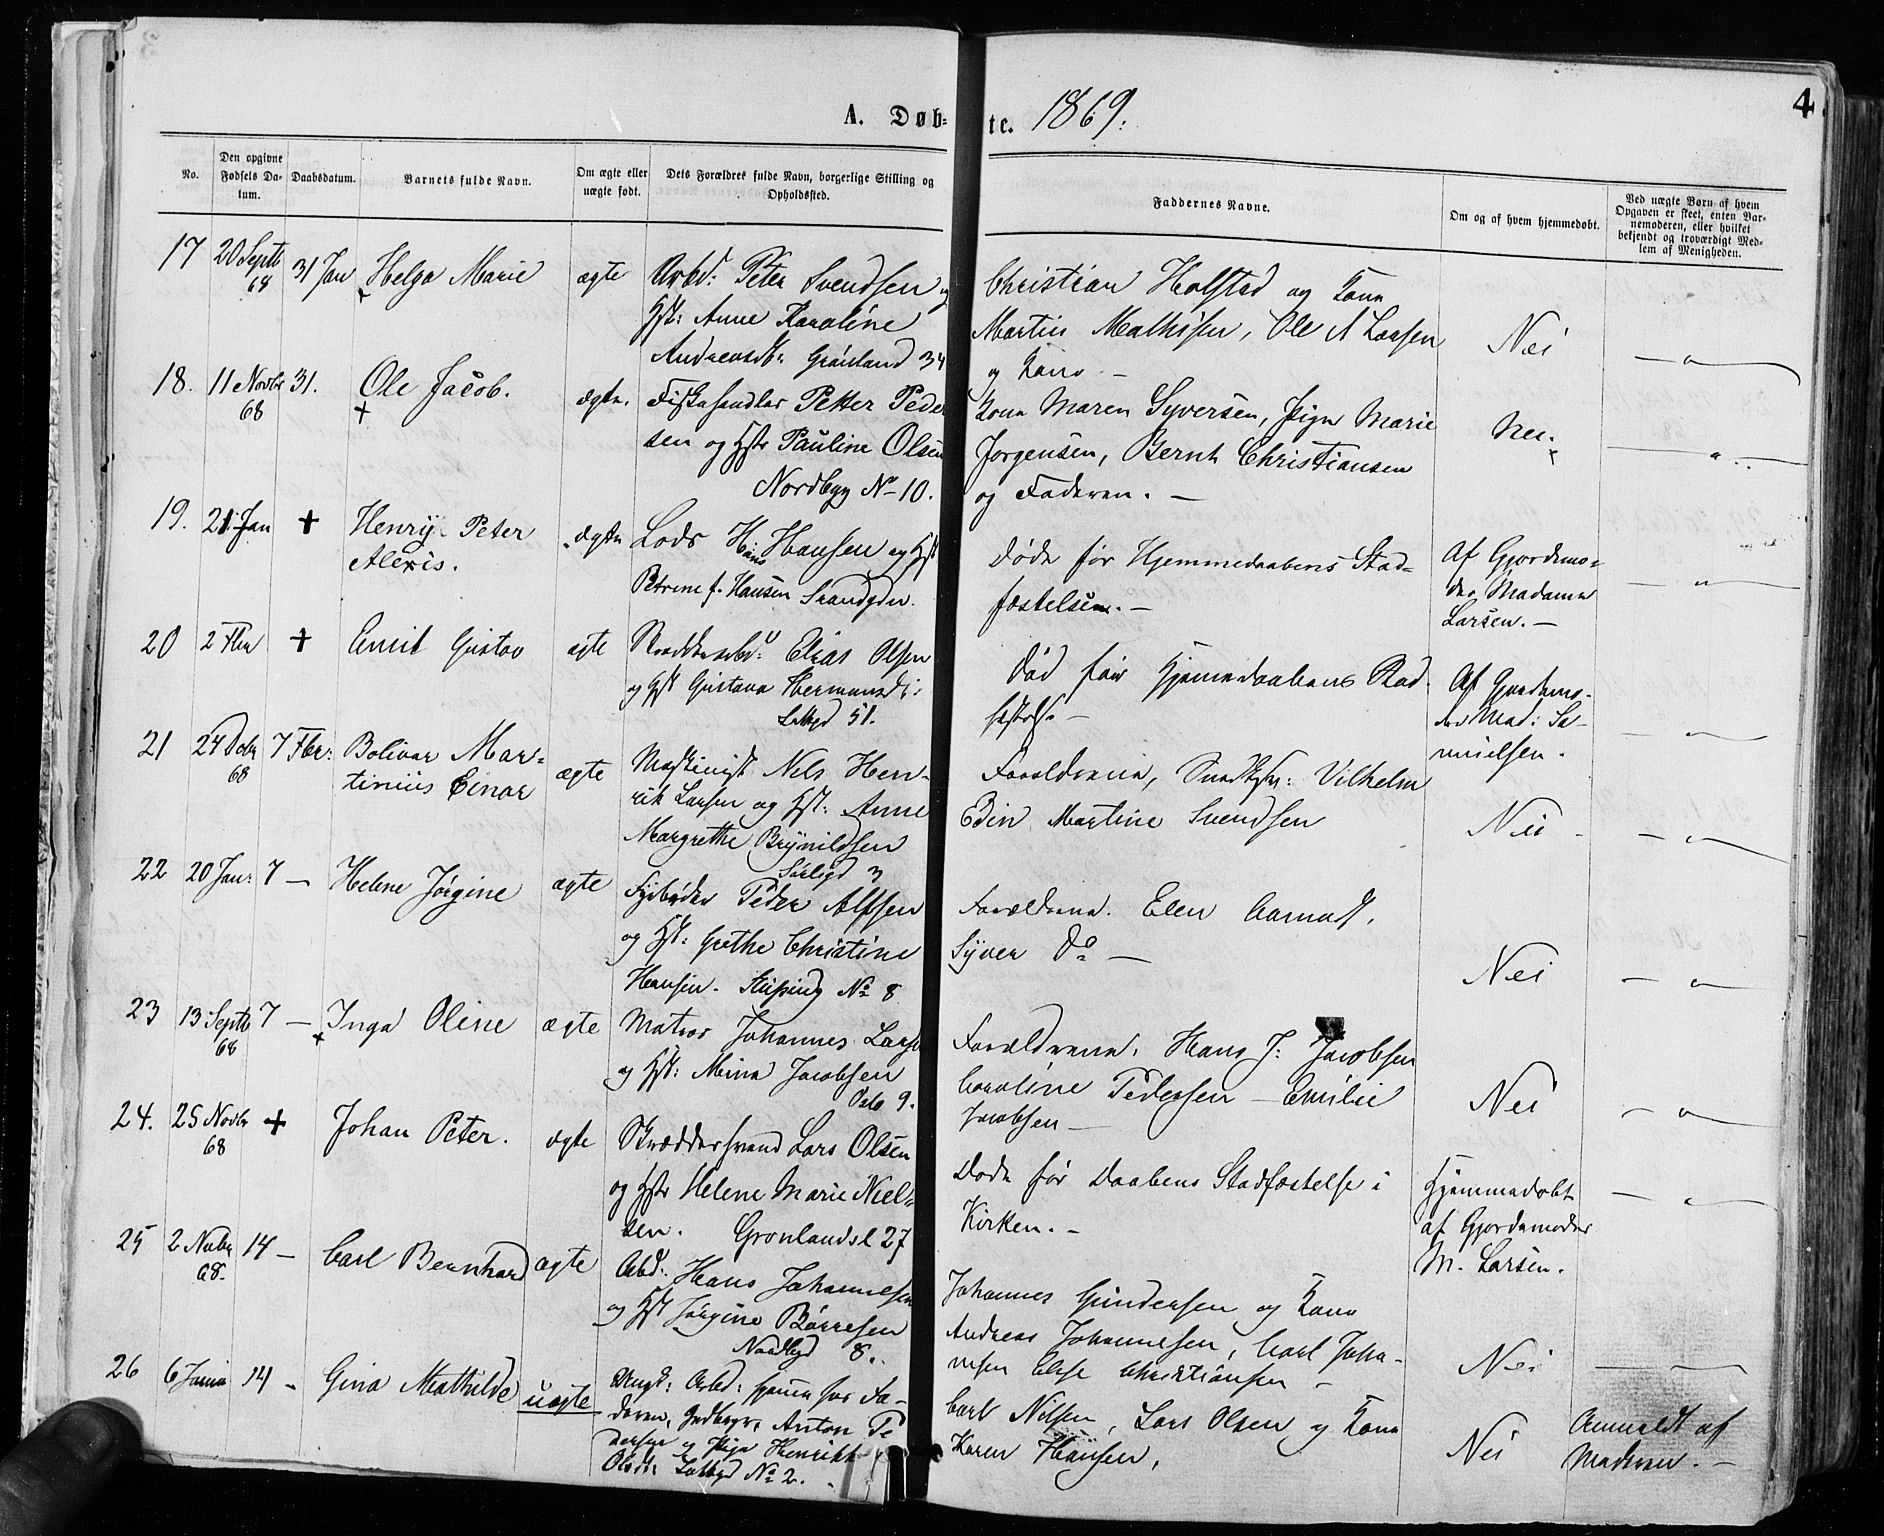 A. Døb-
te. 1869.
4
No.
Den opgivne Fødsels Da-
tum.
Daabsdatum.
Barnets fulde Navn.
Om ægte eller
uægte født.
Dets Forældres fulde Navn, borgerlige Stilling og
Opholdssted.
Faddernes Navne.
Om og af hvem hjemmedøbt.
Ved uægte Børn af hvem
Opgaven er skeet, enten Bar-
nemoderen, eller hvilket
bekjendt og troværdigt Med-
lem af Menigheden.
17 20 Septb 68 31 Jan Helga Marie ægte Arbd: Peter Svendsen og
Hst: Anne Karoline
Andreasdt: Grønland 34
Christian Holstad og Kona
Martin Mathisen, Ole A Larsen
og Kona -
Nei
18. 11 Novbr 68 31. Ole Jacob. ægte. Fiskehandler Petter Peder
sen og Hstr Pauline Olsen
Nordbyg No 10.
Kona Maren Syversen, Pige Marie
Jørgensen, Bernt Christiansen
og Faderen. -
Nei.
19. 21 Jan + Henry Peter
Alexis.
ægte Lods Hans Hansen og Hst
Petrine f. Hansen
Døde før Hjemmedaabens Stad-
fæstelsen. -
Af Gjordemo-
der Madame
Larsen. -
20 2 Fbr + Emil Gustav ægte Elias Olsen
og Hst Gustava Hermansdt:
51.
Død før Hjemmedaabens Stad
fæstelse -
Af Gjordemo-
der Mad: Sa-
muelsen.
21 24 Dcbr 68 7 Fbr: Bolivar Mar-
tinius Einar
ægte Maskinist Nels Hen-
rik Larsen og Hst: Anne
Margrethe Brynildsen
3
Forældrene, Vilhelm
Edin Martine Svendsen
Nei
22 20 Jan: 7 - Helene Jørgine ægte Fyrbøder Peder Alfsen
og Hst: Grethe Christine
Hansen. No 8
Forældrene. Elen Aamodt,
Syver Do -
Nei
23 13 Septb 68 7 - Inga Oline ægte Matros Johannes Larse
og Hst: Mina Jacobsen
Oslo 9.
Forældrene, Hans J: Jacobsen
Caroline Pedersen - Emilie
Jacobsen -
Nei
24. 25 Novbr 68 + Johan Peter. ægte Skræddersvend Lars Olsen
og Hstr Helene Marie Niel-
sen. Grønlandsl 27
Døde før Daabens Stadfæstelse i
Kirken. -
Hjemmedøbt
af Gjordemoder
M. Larsen.
25 2 Novbr 68. 14 - Carl Bernhard ægte Arbd: Hans Johannesen
og Hst Jørgine Børresen
Nordbyd 8.
Johannes Gundersen og Kona
Andreas Johannesen, Carl Joha-
nsen Else Christiansen -
Nei
26 6 14 - Gina Mathilde uægte Ungk: Arbd: Fa-
deren, Anton Pe
dersen og Pige Henrikke
Olsdt: No 2.
Carl Nilsen, Lars Olsen og Kona
Karen Hansen,
Nei
Anmeldt af
Moderen. -